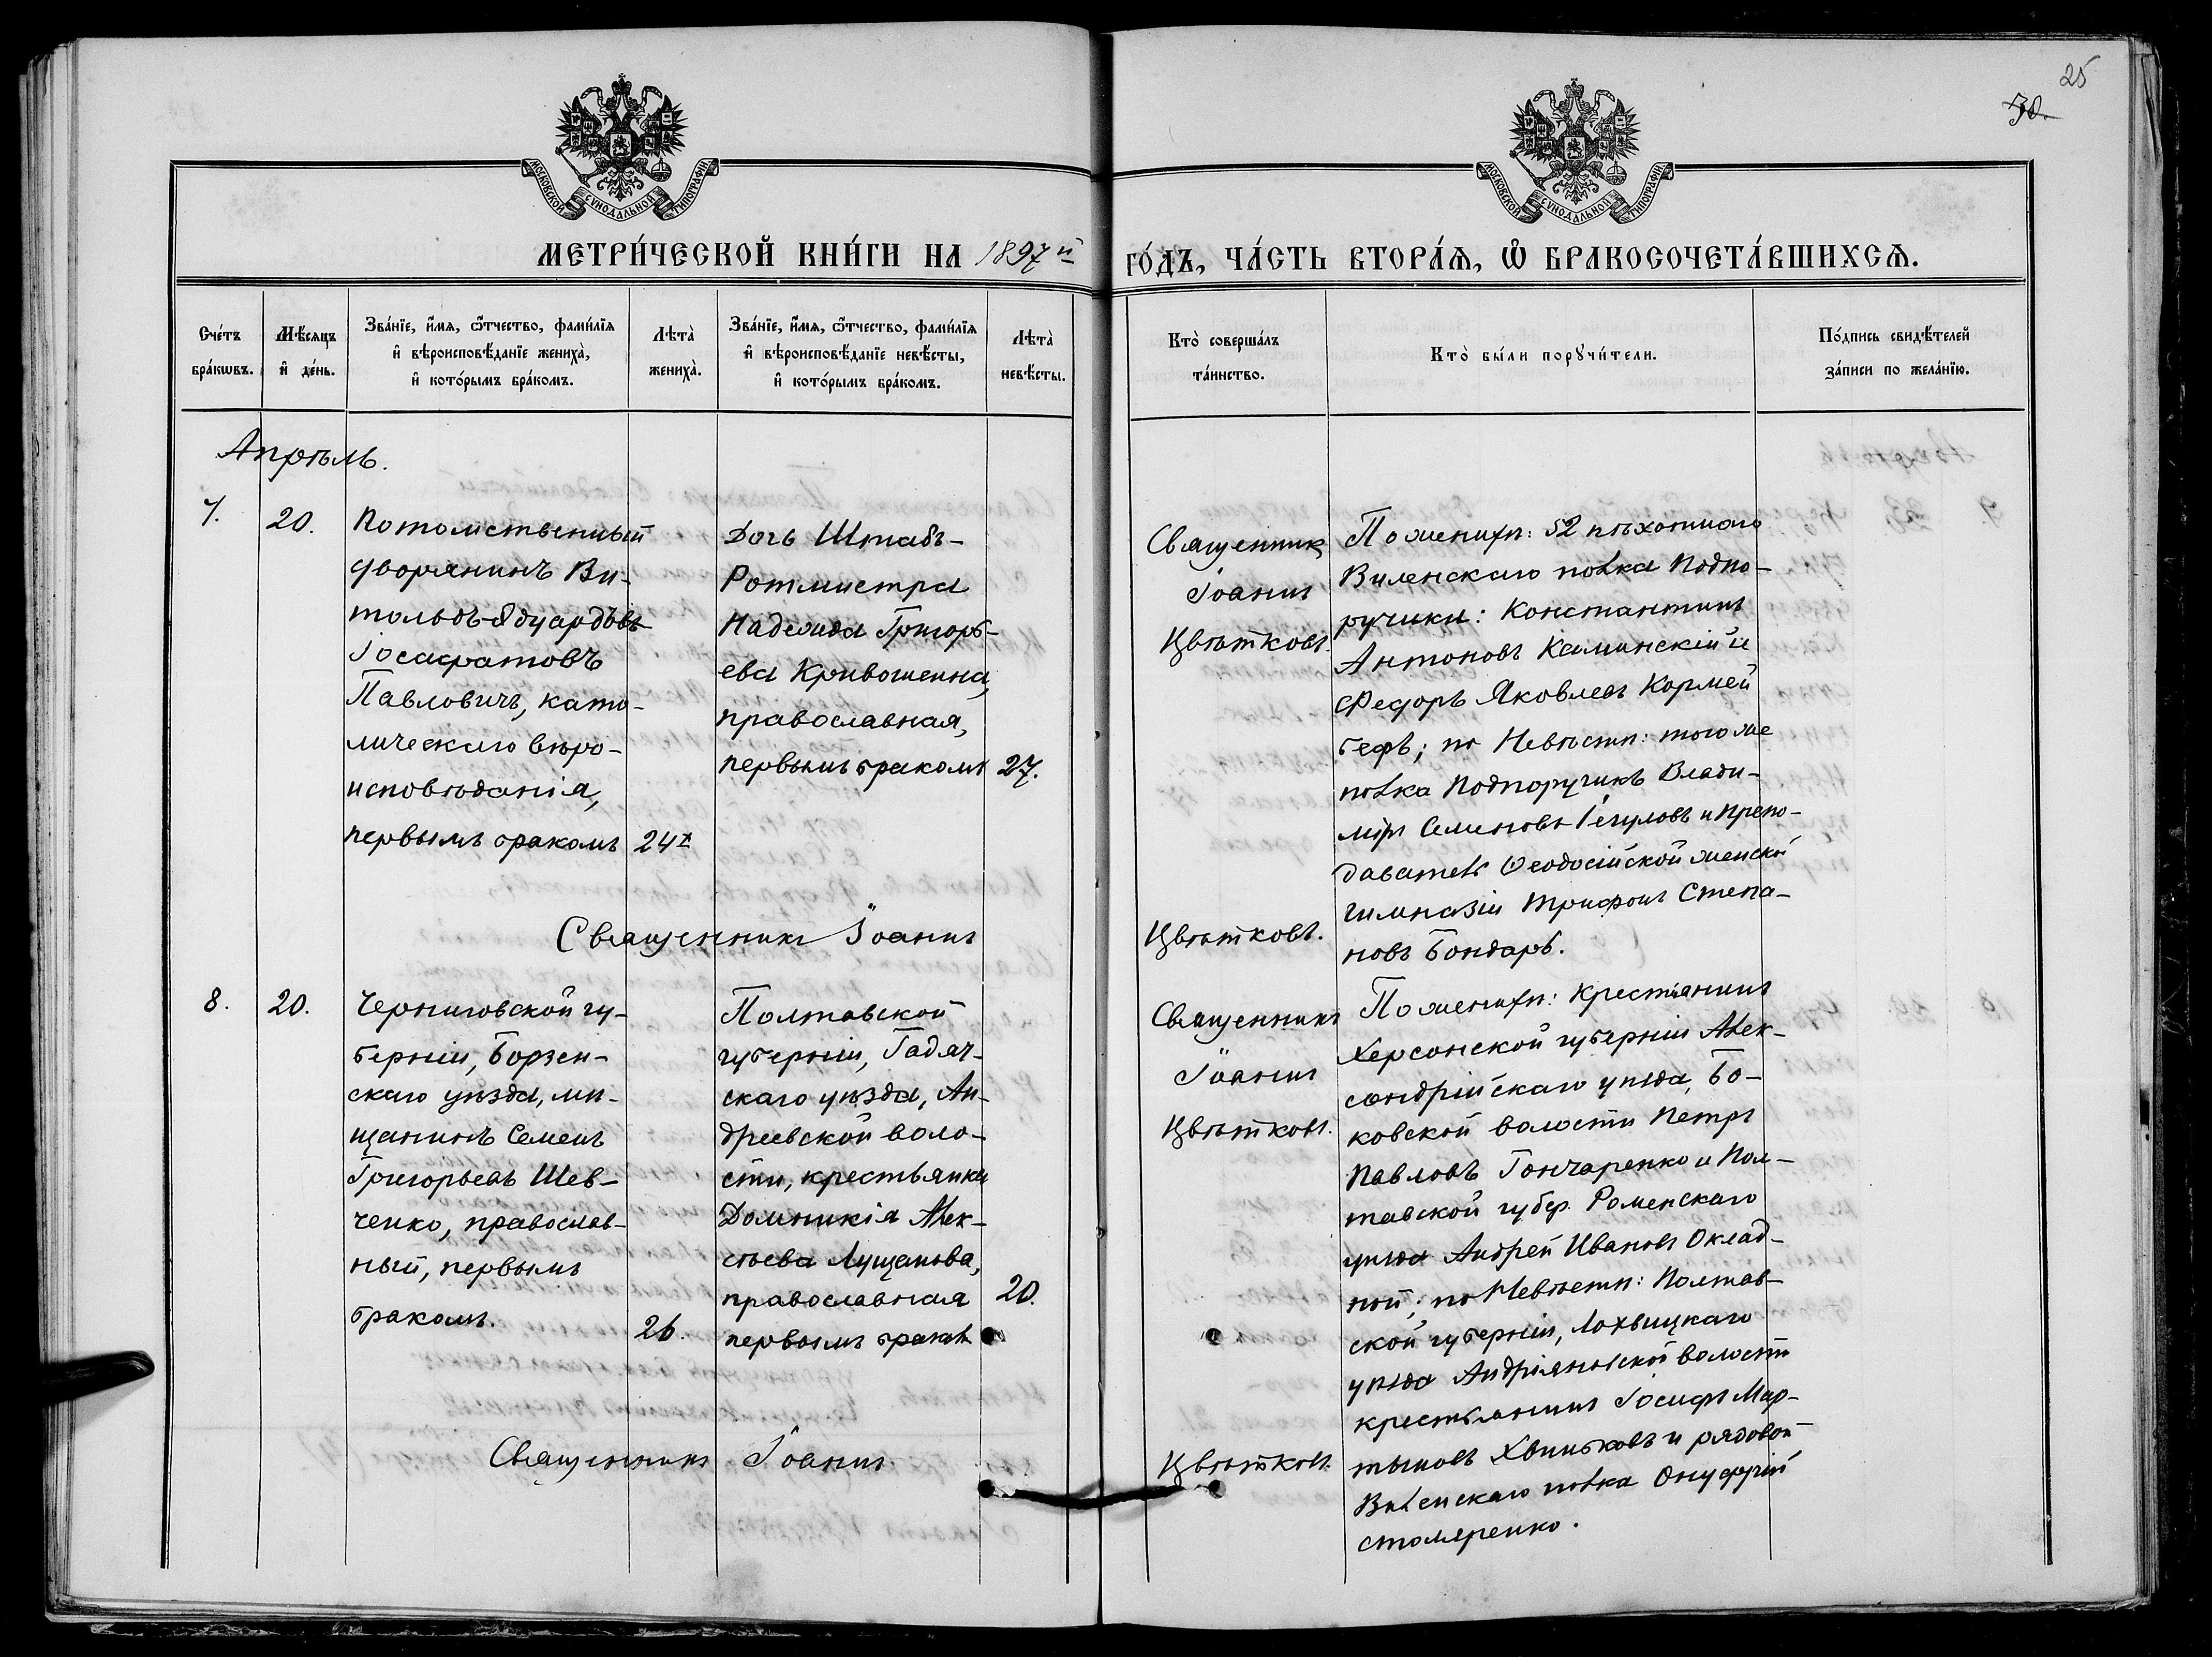 25
30.
МОСКОВСКОЙ СУНОДАЛЬНОЙ ТИПОГРАФІИ
МОСКОВСКОЙ СУНОДАЛЬНОЙ ТИПОГРАФІИ
МЕТРИ́ЧЕСКОЙ КНИ́ГИ НА 1897й ГО́ДЪ, ЧА́СТЬ ВТОРА́Ѧ, Ѽ БРАКОСОЧЕТА́ВШИХСѦ.
Сче́тъ
бра́кѡвъ.
Мѣ́сяцъ
и҆ де́нь.
Зва́нїе, и҆́мѧ, ѻ҆́тчество, фами́лїѧ
и҆ вѣроисповѣ́данїе жениха̀,
и҆ кото́рымъ бра́комъ.
Лѣта̀
жениха̀.
Зва́нїе, и҆́мѧ, ѻ҆́тчество, фами́лїѧ
и҆ вѣроисповѣ́данїе невѣ́сты,
и҆ кото́рымъ бра́комъ.
Лѣта̀
невѣ́сты.
Кто̀ соверша́лъ
та́инство.
Кто̀ бы́ли порꙋчи́тели.
По́дпись свидѣ́телей
за́писи по жела́нїю.
Апрѣль.
7.
20.
Потомственный
дворянинъ Ви-
тольдъ-Эдуардъ
Іосафатовъ
Павловичъ, като-
лическаго вѣро-
исповѣданія,
первымъ бракомъ
24х
Дочь Штабъ-
Ротмистра
Надежда Григорь-
ева Кривошеина,
православная,
первымъ бракомъ
27.
Священникъ
Іоаннъ
Цвѣтковъ.
По женихѣ: 52 пѣхотнаго
Виленскаго полка Подпо-
ручики: Константинъ
Антоновъ Каминскій и
Федоръ Яковлевъ Кормей
; по Невѣстѣ: того же
полка Подпоручикъ Влади-
міръ Семеновъ и Препо-
даватель Ѳеодосійской женской
гимназіи Трифонъ Степа-
новъ Бондарь.
Священникъ Іоаннъ Цвѣтковъ.
8.
20.
Черниговской гу-
берніи, Борзен-
скаго уѣзда, мѣ-
щанинъ Семенъ
Григорьевъ Шев-
ченко, православ-
ный, первымъ
бракомъ.
26.
Полтавской
губерніи, Гадяч-
скаго уѣзда, Ан-
дреевской воло-
сти, крестьянка
Домникія Алек-
сѣева Лущанова,
православная
первымъ бракомъ
20.
Священникъ
Іоаннъ
Цвѣтковъ.
По женихѣ: Крестьянинъ
Херсонской губерніи Алек-
сандрійскаго уѣзда, Бо-
ковской волости Петръ
Павловъ Гончаренко и Пол-
тавской губер. Роменскаго
уѣзда Андрей Ивановъ Оклад-
ной; по Невѣстѣ: Полтав-
ской губерніи, Лохвицкаго
уѣзда Андріяновской волости
крестьянинъ Іосифъ Мар-
тыновъ Хвильковъ и рядовой
Виленскаго полка Онуфрій
Столяренко.
Священникъ Іоаннъ Цвѣтковъ.